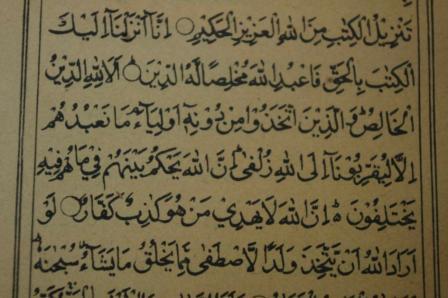 تَنْزِيْلُ الْكِتٰبِ مِنَ اللّٰهِ الْعَزِيْزِ الْحَكِيْمِ ۝ اِنَّآ اَنْزَلْنَآ اِلَيْكَ
الْكِتٰبَ بِالْحَقِّ فَاعْبُدِ اللّٰهَ مُخْلِصًا لَّهُ الدِّيْنَ ۝ اَلَا لِلّٰهِ الدِّيْنُ
الْخَالِصُ ؕ وَالَّذِيْنَ اتَّخَذُوْا مِنْ دُوْنِهٖٓ اَوْلِيَآءَ ۘ مَا نَعْبُدُهُمْ
اِلَّا لِيُقَرِّبُوْنَآ اِلَى اللّٰهِ زُلْفٰى ؕ اِنَّ اللّٰهَ يَحْكُمُ بَيْنَهُمْ فِيْ مَا هُمْ فِيْهِ
يَخْتَلِفُوْنَ ۬ؕ اِنَّ اللّٰهَ لَا يَهْدِيْ مَنْ هُوَ كٰذِبٌ كَفَّارٌ ۝ لَوْ
اَرَادَ اللّٰهُ اَنْ يَّتَّخِذَ وَلَدًا لَّاصْطَفٰى مِمَّا يَخْلُقُ مَا يَشَآءُ ۙ سُبْحٰنَهٗ ؕ